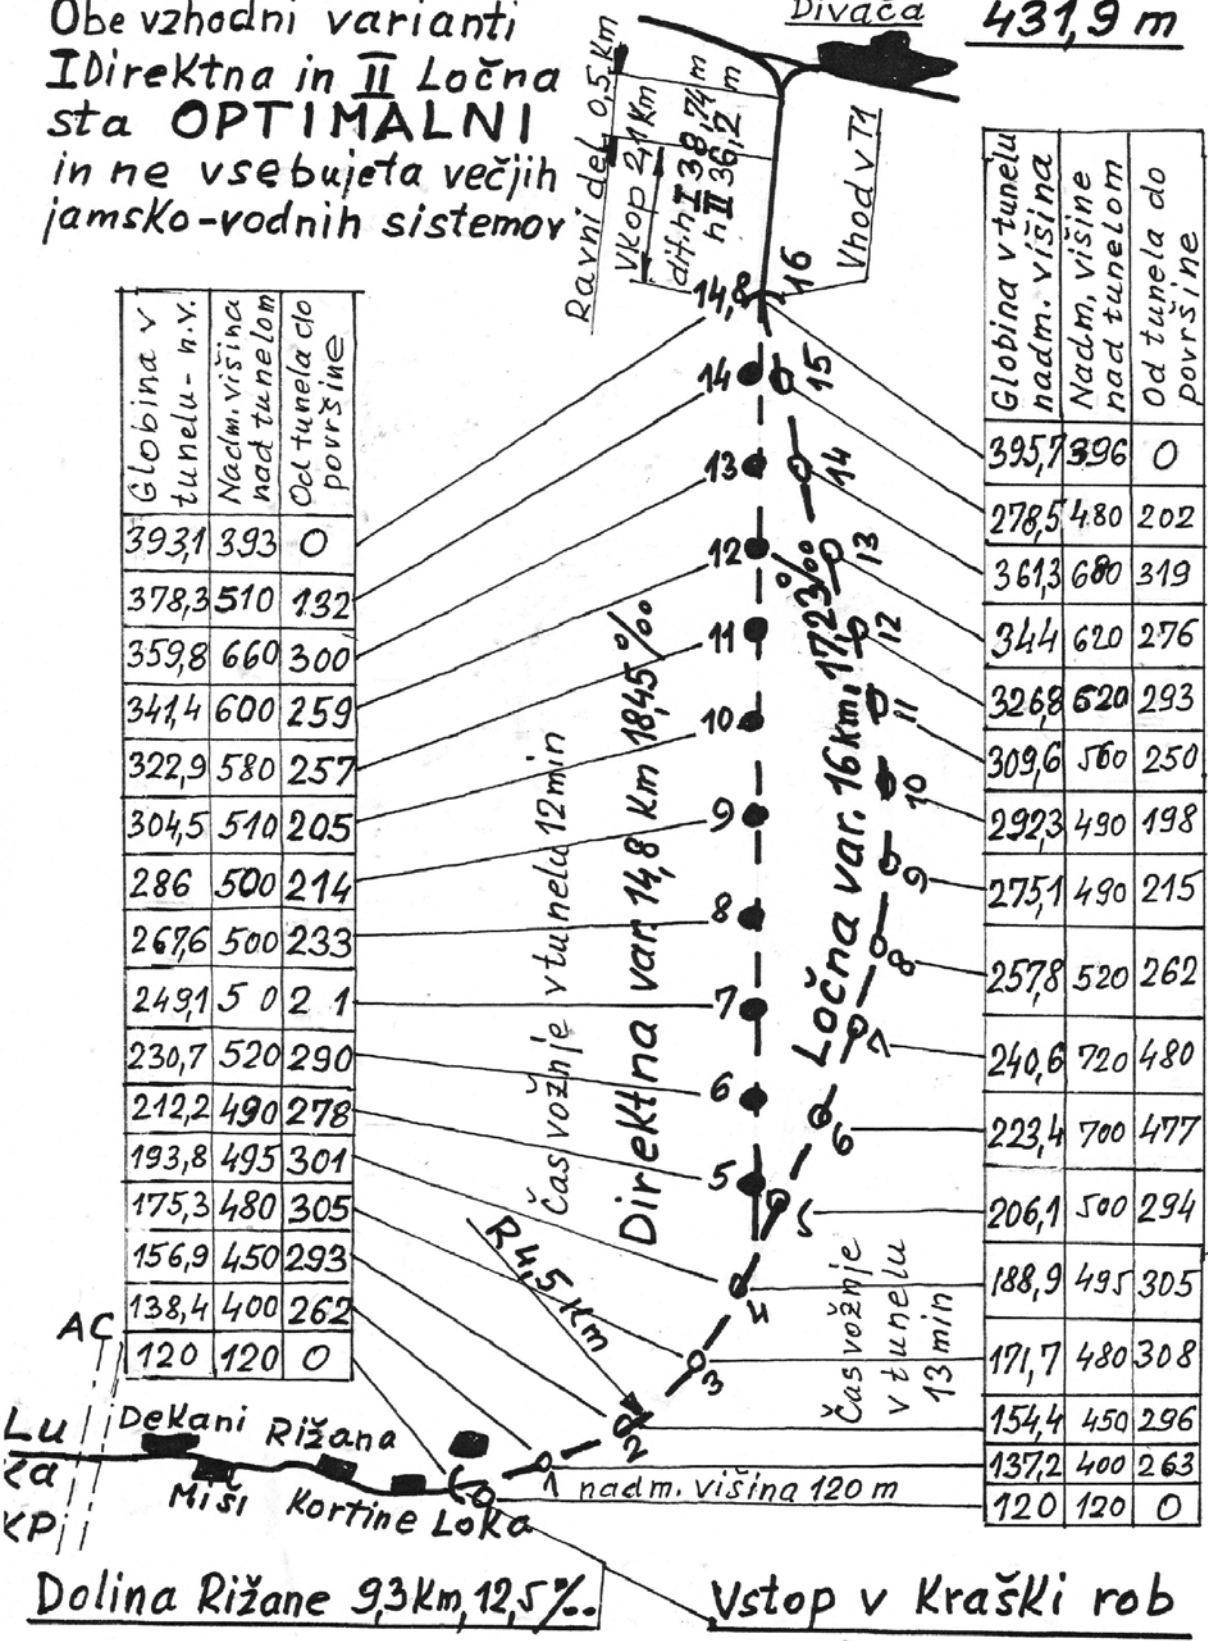 Obe vzhodni varianti
I Direktna in II Ločna
sta OPTIMALNI
in ne vsebujeta večjih
jamsko-vodnih sistemov
Divača
431,9 m
Ravni del 0,5 Km
Vkop 2,1 Km
dif. h I 38,74 m
h II 36,2 m
Vhod v T1
Globina v tunelu - n.v.
Nadm. višina nad tunelom
Od tunela do površine
393,1 393 0
378,3 510 132
359,8 660 300
341,4 600 259
322,9 580 257
304,5 510 205
286 500 214
267,6 500 233
249,1 5 0 2 1
230,7 520 290
212,2 490 278
193,8 495 301
175,3 480 305
156,9 450 293
138,4 400 262
120 120 0
14,8
14
13
12
11
10
9
8
7
6
5
16
15
14
13
12
11
10
9
8
7
6
5
4
3
2
1
Čas vožnje v tunelu 12 min
Direktna var. 14,8 Km 18,45 ‰
Ločna var. 16 Km, 17,23 ‰
R 4,5 Km
Čas vožnje
v tunelu
13 min
Globina v tunelu nadm. višina
Nadm. višine nad tunelom
Od tunela do površine
395,7 396 0
278,5 480 202
361,3 680 319
344 620 276
326,8 620 293
309,6 560 250
292,3 490 198
275,1 490 215
257,8 520 262
240,6 720 480
223,4 700 477
206,1 500 294
188,9 495 305
171,7 480 308
154,4 450 296
137,2 400 263
120 120 0
nadm. višina 120 m
AC
Lu
Ka
KP
Dekani
Rižana
Miši
Kortine
Loka
Dolina Rižane 9,3 Km, 12,5 ‰
Vstop v Kraški rob